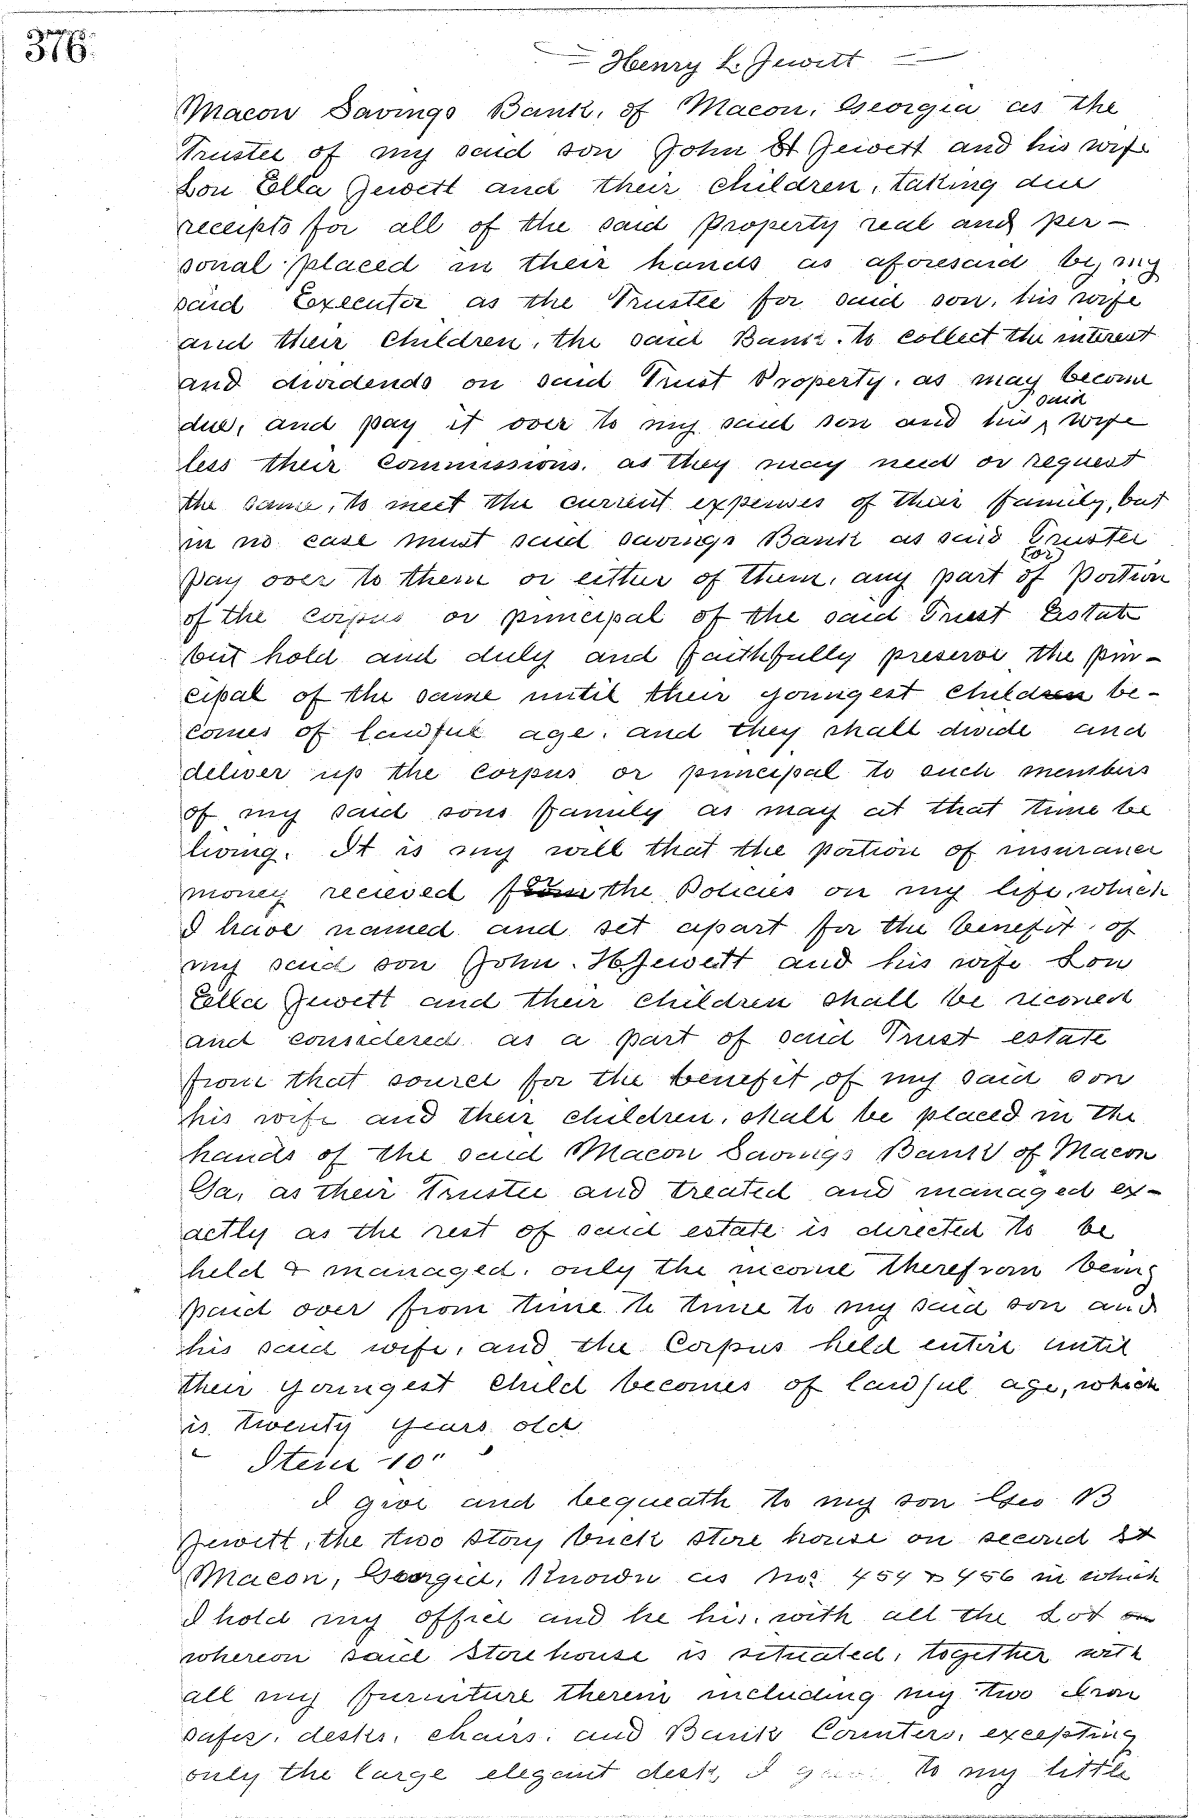 376.
Henry L. Jewett
Macon Savings Bank, of Macon, Georgia as the
Trustee of my said son John H Jewett and his wife
Lou Ella Jewett and their children, taking due
receipts for all of the said Property real and per-
sonal placed in their hands as aforesaid by my
said Executor as the Trustee for said son, his wife
and their children, the said Bank. to collect the interest
and dividends on said Trust Property, as may become
due, and pay it over to my said son and his ^ said wife
less their commissions. as they may need or request
the same, to meet the current expenses of their family, but
in no case must said savings Bank as said Trustee
pay over to them or either of them, any part of (or) Portion
of the corpus or principal of the said Trust Estate
but hold and duly and faithfully preserve the prin-
cipal of the same until their youngest child be-
comes of lawful age. and they shall divide and
deliver up the corpus or principal to such members
of my said sons family as may at that time be
living. It is my will that the portion of insurance
money recieved for the Policies on my life, which
I have named and set apart for the benefit of
my said son John. H Jewett and his wife Lou
Ella Jewett and their children shall be reconed
and considered as a part of said Trust estate
from that source for the benefit, of my said son
his wife and their children, shall be placed in the
hands of the said Macon Savings Bank of Macon
Ga, as their Trustee and treated and managed ex-
actly as the rest of said estate is directed to be
held & managed. only the income therefrom being
paid over from time to time to my said son and
his said wife, and the Corpus held entire until
their youngest child becomes of lawful age, which
is twenty years old
" Item 10" "
I give and bequeath to my son Geo B
Jewett, the two story brick store house on second St
Macon, Georgia, Known as No? 454 & 456 in which
I hold my office and he his. with all the Lot on
whereon said store house is situated, together with
all my furniture therein including my two Iron
safes. desks, chairs, and Bank Counters, excepting
only the large elegant desk, I to my little